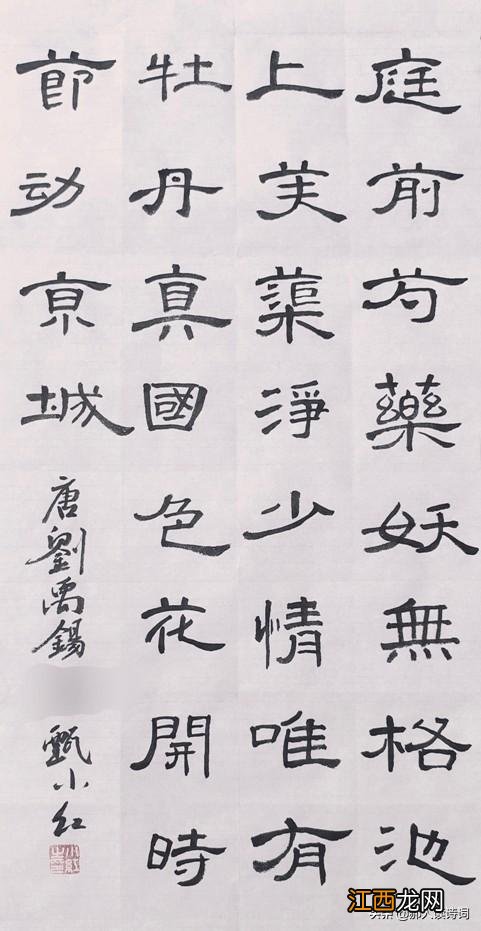 庭前芍藥妖無格池
上芙蕖淨少情唯有
牡丹真國色花開時
節动京城
唐劉禹錫
甄小红
江西龙网